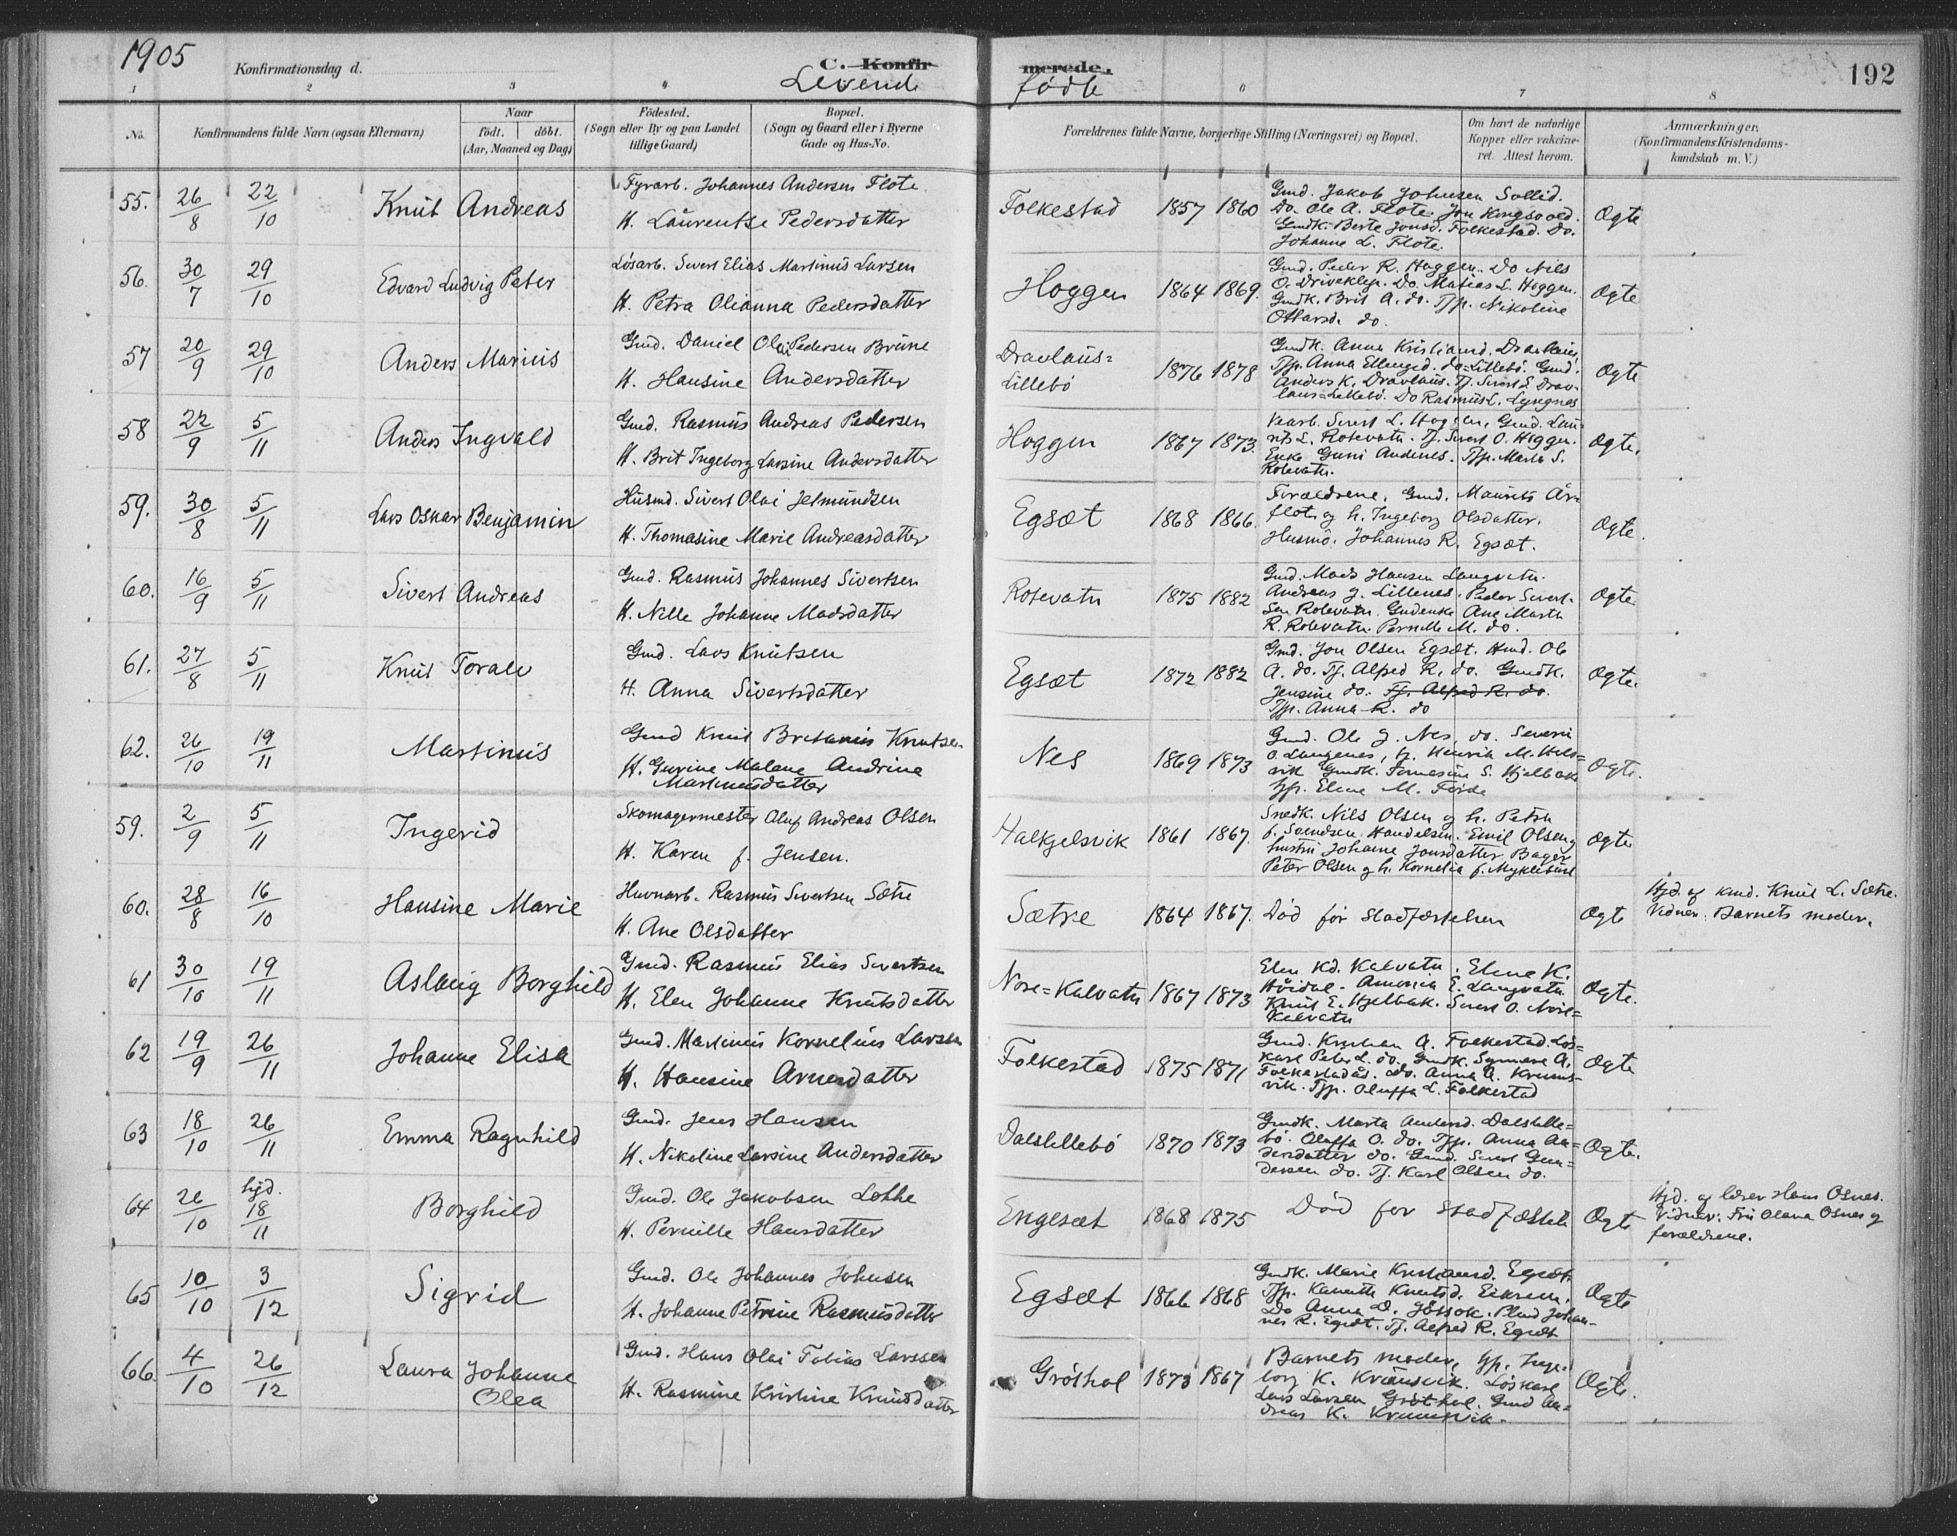 1905
Konfirmationsdag d.
C. Konfirmerede.
Levende fødte
192
1 2 3 4 6 7 8
No.
Konfirmandens fulde Navn (ogsaa Efternavn)
Naar
født. døbt.
(Aar, Maaned og Dag)
Fødested.
(Sogn eller By og paa Landet
tillige Gaard)
Bopæl.
(Sogn og Gaard eller i Byerne
Gade og Hus-No.
Forældrenes fulde Navne, borgerlige Stilling (Næringsvei) og Bopæl.
Om havt de naturlige
Kopper eller vakcine-
ret. Attest herom.
Anmærkninger.
(Konfirmandens Kristendoms-
kundskab m. V.)
55. 26/8 22/10 Knut Andreas
Fyrarb. Johannes Andersen Flote.
H. Laurentse Pedersdatter
Folkestad 1857 1860
Gmd. Jakob Johnsen Sollid.
Do. Ole A. Flote. Jon Kongsvold.
Gmdk. Berte Jonsd. Folkestad. Do.
Johanne L. Flote.
Ægte
56. 30/7 29/10 Edvard Ludvig Peter
Løsarb. Sivert Elias Martinus Larsen
H. Petra Olianna Pedersdatter
Hoggen 1864 1869.
Gmd. Peder R. Hoggen. Do Nils
O. Driveklep. Do. Matias L. Hoggen.
Gmdk. Brit A. do. Tjp. Nikoline
Ottarsd. do.
Ægte
57 20/9 29/10 Anders Marius
Gmd. Daniel Olai Pedersen Brune
H. Hansine Andersdatter
Dravlaus=
Lillebø
1876 1878
Gmdk. Anna Kristiansd. Dravlaus,
Tjp. Anna Ellingsd. do=Lillebø. Gmd.
Anders K. Dravlaus. Tj. Sivert S. Drav-
laus=Lillebø. Do Rasmus L. Lyngnes
Ægte
58 22/9 5/11 Anders Ingvald
Gmd. Rasmus Andreas Pedersen
H. Brit Ingeborg Larsine Andersdatter
Hoggen 1867 1873.
Vearb. Sivert L. Hoggen, Gmd. Lau-
rits L. Rotevatn. Tj. Sivert O. Hoggen.
Enke Guni Andines. Tjp. Marta S.
Rotevatn.
Ægte.
59. 30/8 5/11 Lars Oskar Benjamin
Husmd. Sivert Olai Jetmundsen
H. Thomasine Marie Andreasdatter
Egsæt 1868 1866.
Forældrene, Gmd. Maurits År=
flot og h. Ingeborg Olsdatter.
Husmd. Johannes R. Egsæt.
Ægte.
60. 16/9 5/11 Sivert Andreas
Gmd. Rasmus Johannes Sivertsen
H. Nille Johanne Madsdatter
Rotevatn 1875 1882
Gmd. Mads Hansen Langvatn.
Andreas J. Lillenes, Peder Sivert-
sen Rotevatn. Gmdenke Ane Marta
R. Rotevatn. Pernille M. do.
Ægte.
61. 27/8 5/11 Knut Toralv
Gmd. Lars Knutsen
H. Anna Sivertsdatter
Egsæt 1872 1882
Gmd. Jon Olsen Egsæt. Hmd. Ole
A. do. Tj. Alfred R. do. Gmdk.
Jensine do. Tj. Alfred R. do.
Tjp. Anna R. do
Ægte.
62. 26/10 19/11 Martinus
Gmd Knut Bretanus Knutsen.
H. Gurine Malene Andrine
Martinusdatter
Nes 1869 1873
Gmd. Ole J. Nes, do. Severin
O. Langenes, h. Henrik M.
Gmdk. S. Hjelbak
Tjp. Eline M. Førde
Ægte.
59. 2/9 5/11 Ingerid
Skomagermester Oluf Andreas Olsen
H. Karen f. Jensen.
Halkjelsvik 1861 1867.
Snedk. Nils Olsen og h. Petra
f. Svendsen. Handelsm. Emil Olsen og
hustru Johanne Jonsdatter. Bager
Peter Olsen og h. Kornelia f. Myklebust
Ægte
60. 28/8 16/10 Hansine Marie
Havnarb. Rasmus Sivertsen Sætre
H. Ane Olsdatter
Sætre 1864 1867.
Død før stadfæstelsen
Ægte
Hjd. af kand. Knut L. Sætre.
Vidner: Barnets moder.
61 30/10 19/11 Aslaug Borghild
Gmd. Rasmus Elias Sivertsen
H. Elen Johanne Knutsdatter
Nore=Kalvatn 1867 1873
Elen Kd. Kalvatn, Eline K.
Høidal. E. Langvatn.
Knut E. Hjelbak. Sivert O. Nore=
Kalvatn
Ægte.
62 19/9 26/11 Johanne Elisa
Gmd. Martinus Kornelius Larsen
H. Hansine Arnesdatter
Folkestad 1875 1871
Gmd. Kristian A. Folkestad. Løs=
karl Peter L. do. Gmdk. Synnøve A.
Folkestadås. do. Anna A. Krums-
vik. Tjp. Oluffa L. Folkestad
Ægte
63 18/10 26/11 Emma Ragnhild
Gmd. Jens Hansen
H. Nikoline Larsine Andersdatter
Dalslillebø 1870 1873
Gmdk. Marta Andersd. Dalslille=
bø. Oluffa O. do. Tjp. Anna An=
dersdatter do. Gmd. Sivert Gun=
dersen do. Tj. Karl Olsen do.
Ægte.
64 20/10 hjd. 18/11 Borghild
Gmd. Ole Jakobsen Løkke
H. Pernille Hansdatter
Engeset 1868 1875
Død før stadfæstelsen
Ægte
Hjd. af lærer Hans Osnes.
Vidner: Fru Olava Osnes og
forældrene.
65 10/10 3/12 Sigrid
Gmd. Ole Johannes Johnsen
H. Johanne Petrine Rasmusdatter
Egsæt 1866 1868
Gmdk. Marie Kristiansd. Egsæt.
Tjp. Knutsd. Eiksund.
Do Anna D. Jøssok. Johan-
nes R. Egsæt. Tj. Alfred R. Egsæt
Ægte
66. 4/10 26/12 Laura Johanne
Olea
Gmd. Hans Olai Tobias Larssen
H. Rasmine Kristine Knutsdatter
Grøthol 1873 1867
Barnets moder, Tjp. Inge-
borg K. Krumsvik. Løskarl
Lars Larsen Grøthol. Gmd An=
dreas K. Krumsvik.
Ægte.